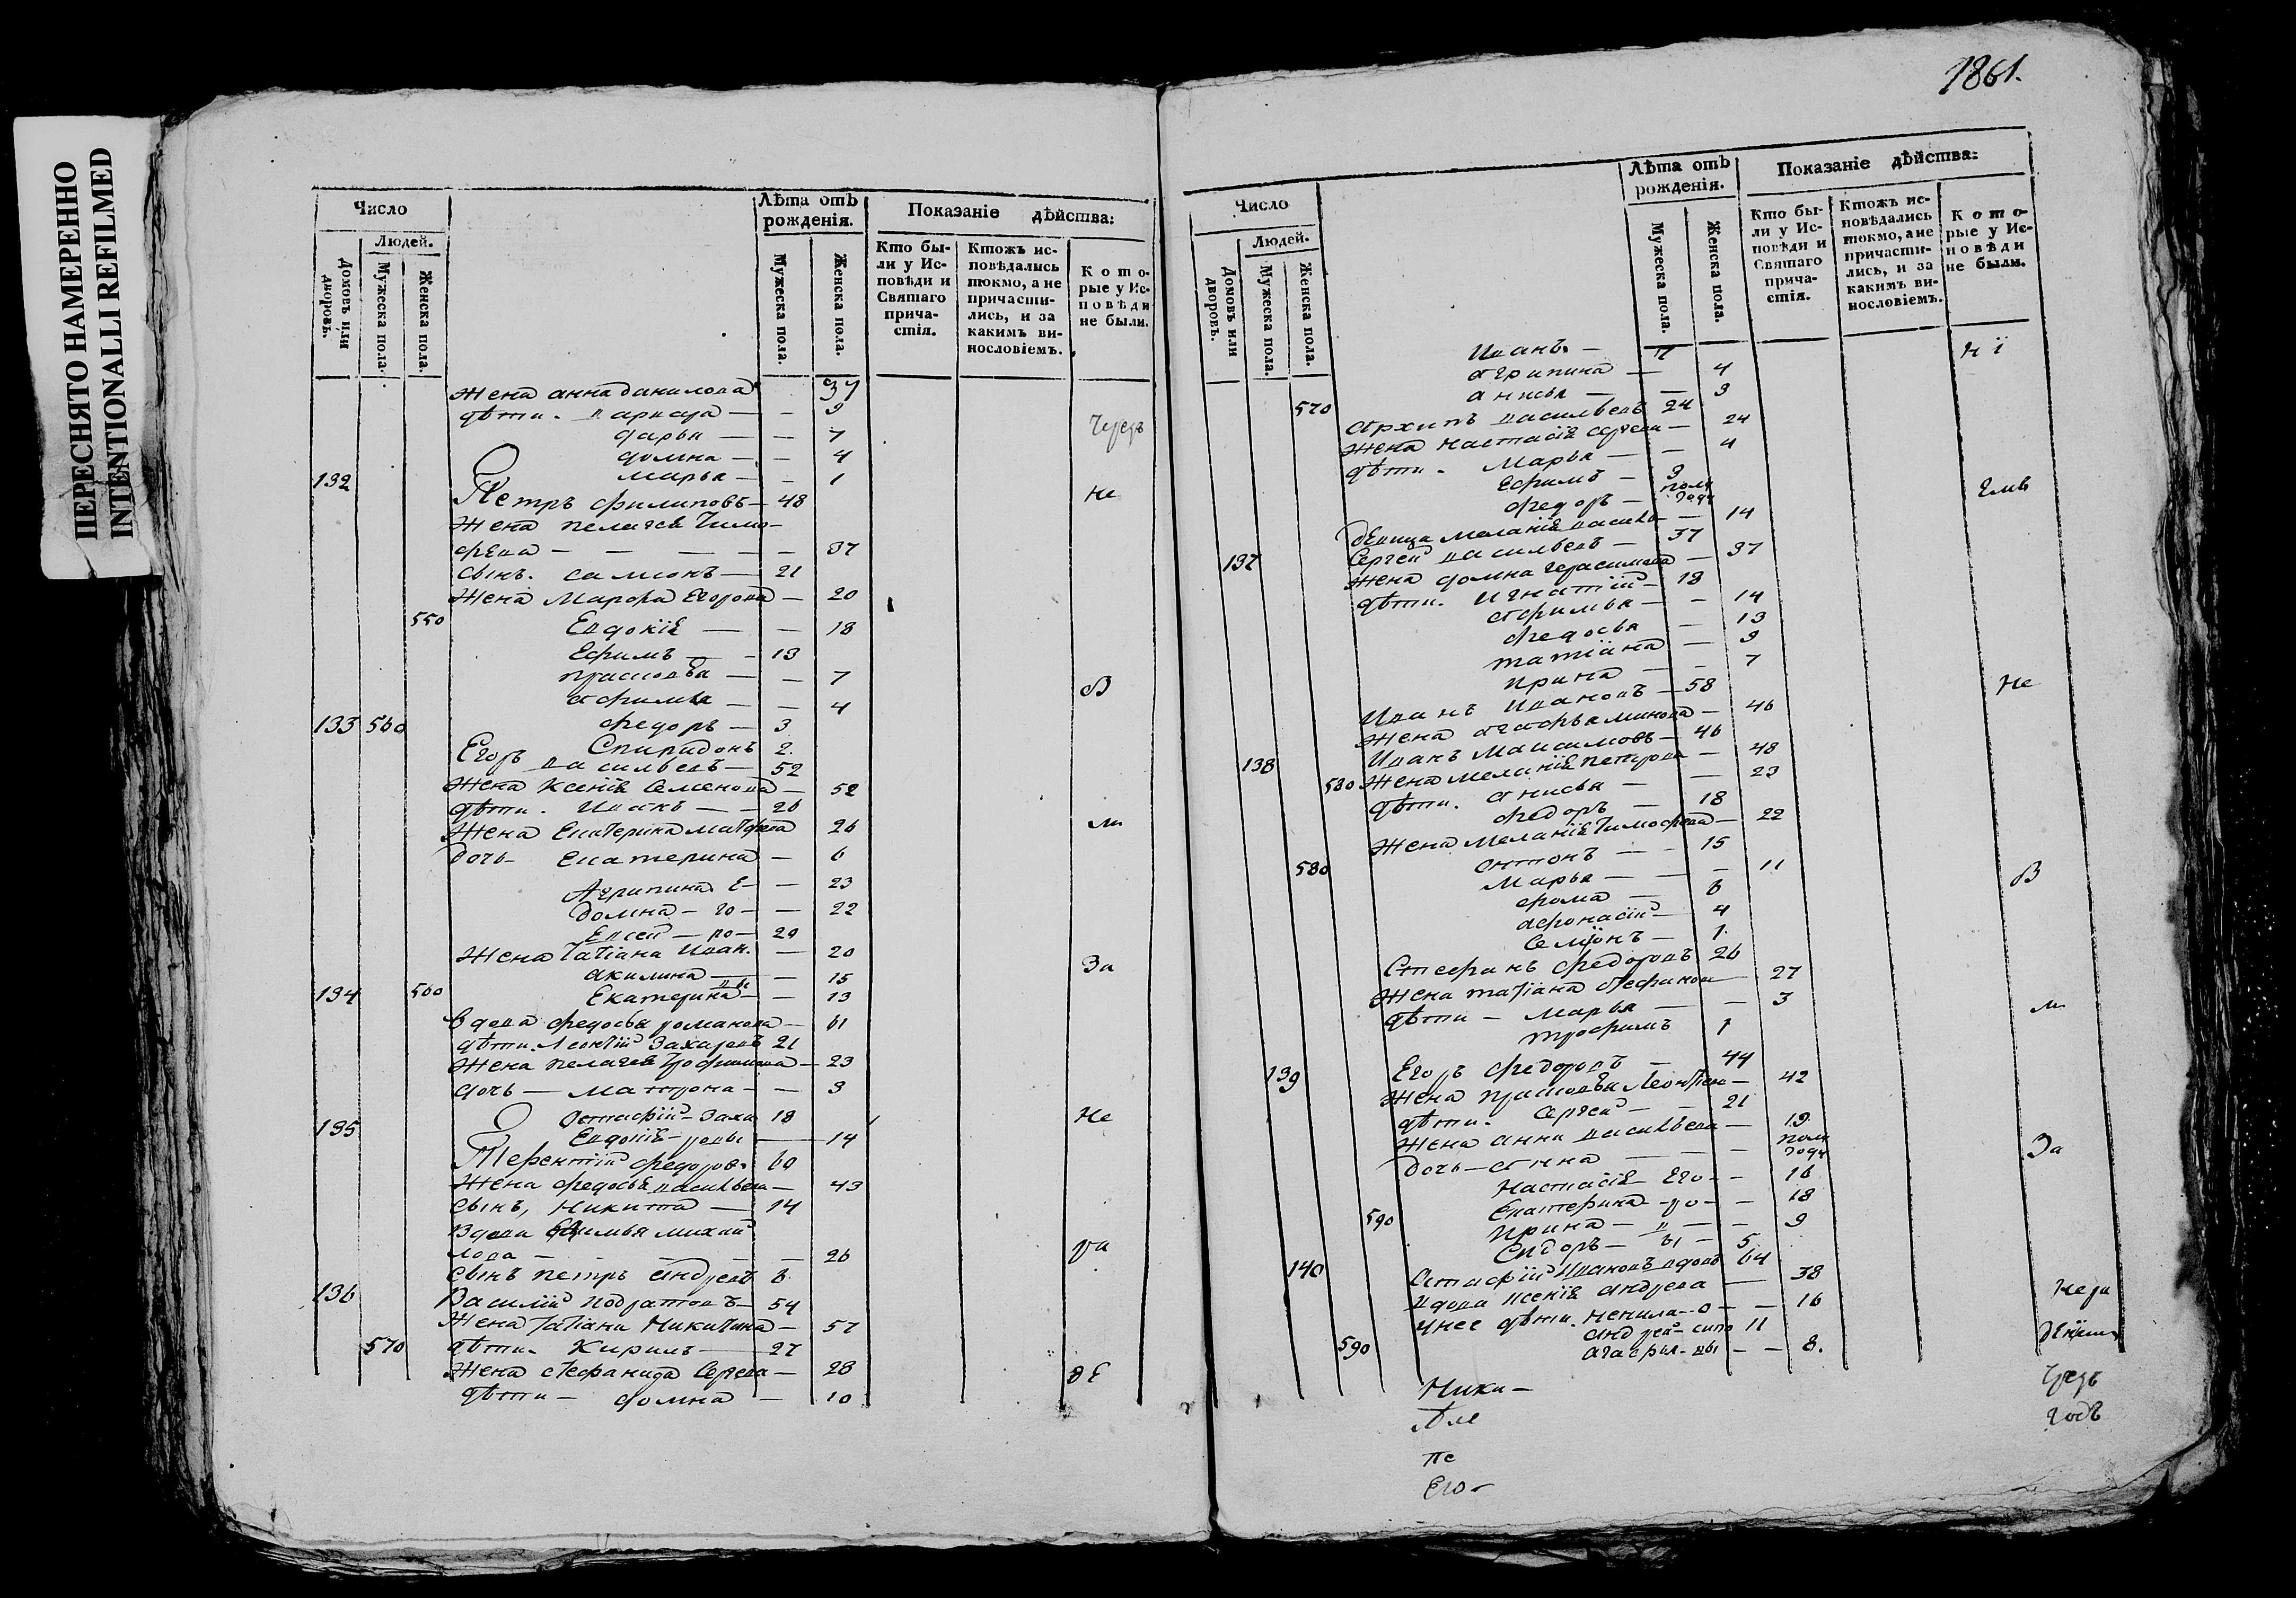 ПЕРЕСНЯТО НАМЕРЕННО
INTENTIONALLI REFILMED
Число
Людей.
Домовъ или дворовъ.
Мужеска пола.
Женска пола.
Лѣта отъ рожденія.
Мужеска пола.
Женска пола.
Показаніе дѣйства:
Кто бы-
ли у Ис-
повѣди и
Святаго
прича-
стія.
Ктожъ ис-
повѣдались
токмо, а не
причасти-
лись, и за
какимъ ви-
нословіемъ.
Кото-
рые у Ис-
повѣди
не были.
Жена анна данилова 37
дѣти. 9
дарья — — 7
домна — — 4
марья — — 1
132 Петръ филиповъ — 48 не
Жена пелагея Тимо-
феева — — — — 37
сынъ. самсонъ — 21
Жена Марфа Егорова — 20
550 Евдокія — — 18
Ефимъ — — 13
прасковья — — 7 в
афимья — — 4
133 560 федоръ — 3
Спиридонъ 2.
Егоръ васильевъ — 52
Жена Ксенія Семенова — 52
дѣти. Иванъ — — 26
Жена Екатерина матфеева 26
дочь — Екатерина — 6
Агрипина Е — — 23
домна — го — — 22
Евсей — ро — 20
Жена Татіана Иван. — 20 За
акилина — — 15
134 560 Екатерина — — 13
вдова федосья романова — 61
дѣти. Леонтій Захаровъ 21
Жена пелагея Трофимова — 23
дочь — матрона — — 3
Остафій — Заха 18 Не
135 Евдокія — ровы — 14
Терентій федоров. 60
Жена федосья васильева — 43
сынъ, Никита — 14
Вдова афимья михай
лова — — — — 26
сынъ петръ андреевъ 6
136 Василій Кодратовъ — 54
Жена Татіана Никитина — 57
570 дѣти. Кирилъ — 27
Жена стефанида Сергеева — 28 дЕ
дѣти — домна — 10
1861.
Число
Людей.
Домовъ или дворовъ.
Мужеска пола.
Женска пола.
Лѣта отъ рожденія.
Мужеска пола.
Женска пола.
Показаніе дѣйства:
Кто бы-
ли у Ис-
повѣди и
Святаго
прича-
стія.
Ктожъ ис-
повѣдались
токмо, а не
причасти-
лись, и за
какимъ ви-
нословіемъ.
Кото-
рые у Ис-
повѣди
не были.
Иванъ — нї
агрипина — 4
570 анисья — — 3
архипъ васильевъ 24
Жена Настасія сергеева — 24
дѣти. Марья — — 4
Ефимъ — 3
федоръ — полу года
девица меланія василь — 14
137 Сергей васильевъ — 37
Жена домна герасимова — 37
дѣти. Игнатій — 18
афимья — — 14
федосья — 13
татіана — 9
ирина — — 7
Иванъ Ивановъ — 58 Не
Жена агафья минова — 46
138 Иванъ Максимовъ — 46
580 Жена меланія петрова — 48
дѣти. анисья — — 23
федоръ — 18
Жена меланія Тимофеева — 22
580 антонъ — — 15
Марья — — — 11 в
фома — 6
афонасій — 4
Семіонъ — 1.
Стефанъ федоровъ 26
Жена татіана стефанова — 27
дѣти — Марья — — 3
трофимъ 1
139 Егоръ федоровъ — 44
Жена прасковья Леонтьева — 42
дѣти. Сергей — — 21
Жена анна васильева — 19
дочь — анна — — — полу года За
Настасія Его — — 16
590 Екатерина — ро — — 18
Ирина — в — — 9
Сидоръ — ы — 5
140 Астафій Ивановъ вдовъ 64
Вдова ксенія андреева — 38
унее дѣти. ненила — о — — 16
590 андрей — 11
агафія — вы — — 8.
Ники —
Але
пе
Его —
годъ